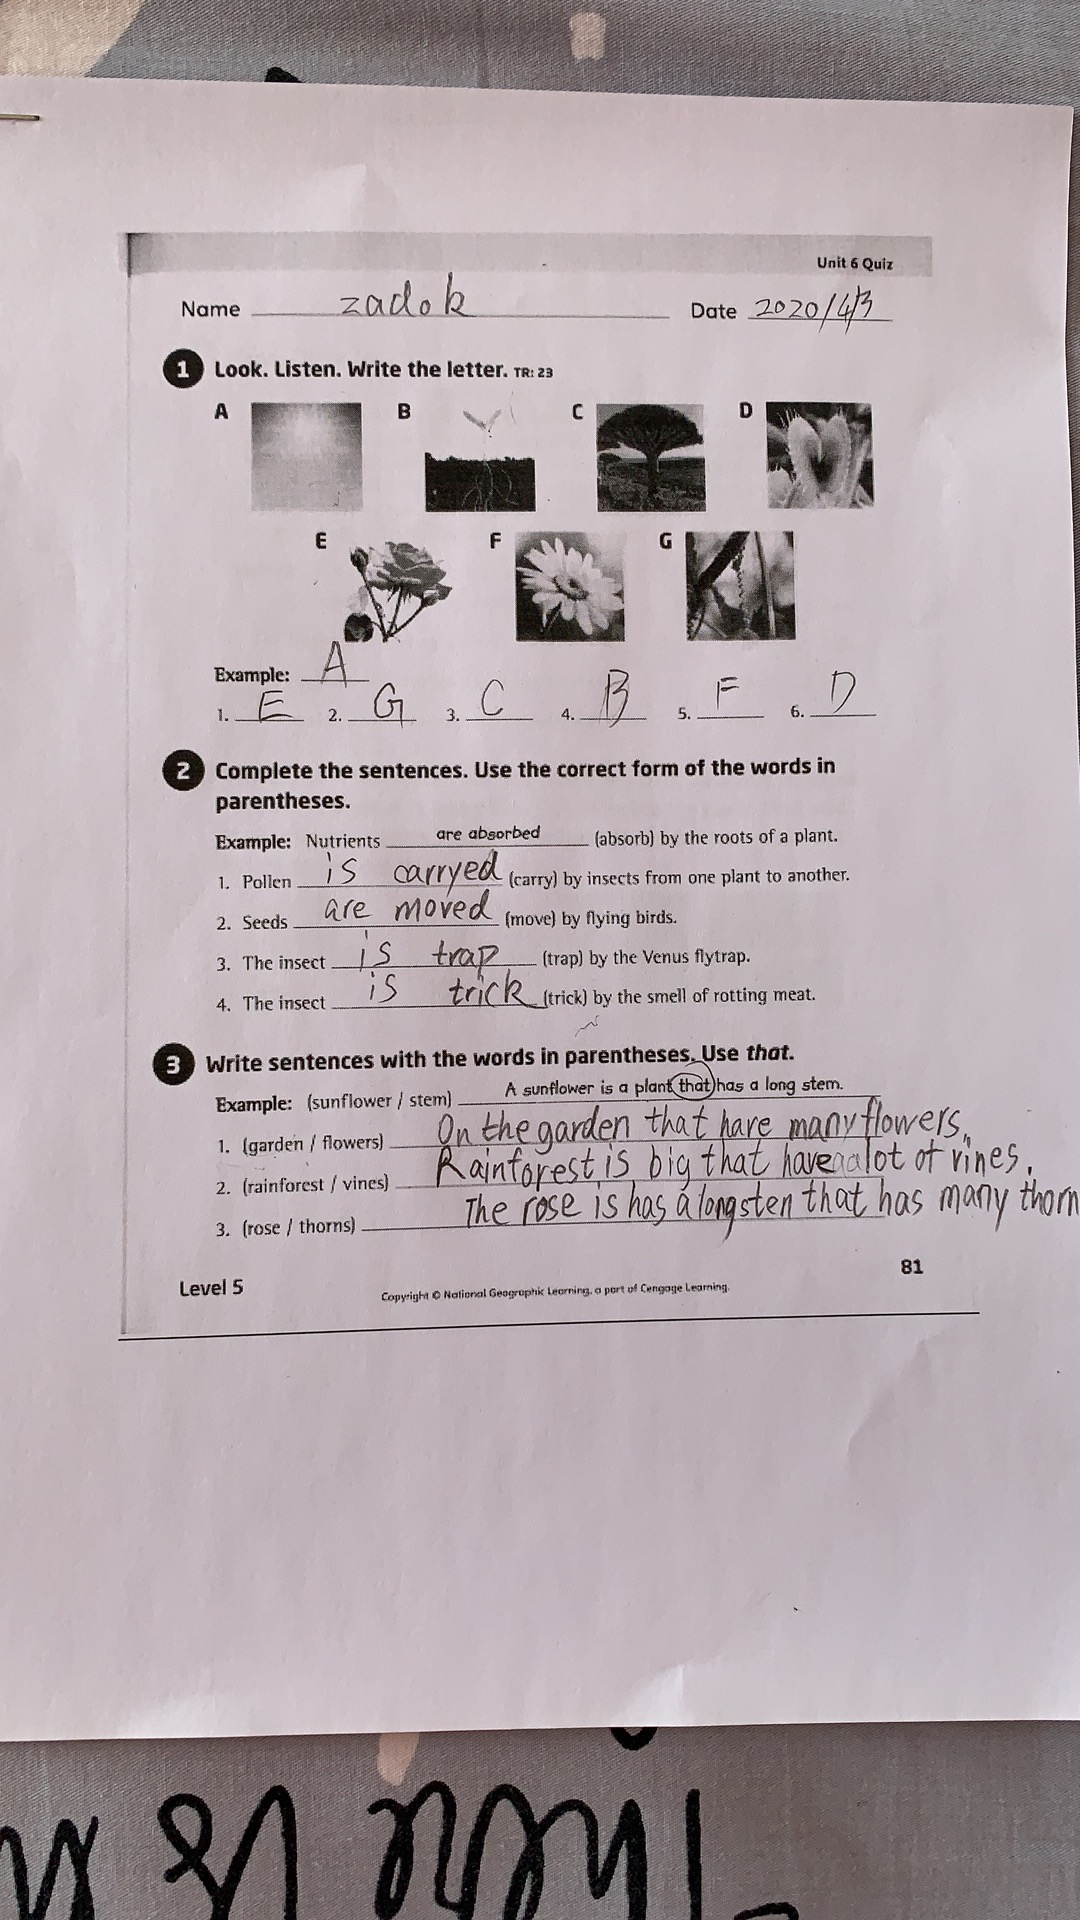 Unit 6 Quiz
Name zadok Date 2020/4/3
1 Look. Listen. Write the letter. TR: 23
A B C D
E F G
Example: A
1. E 2. G 3. C 4. B 5. F 6. D
2 Complete the sentences. Use the correct form of the words in
parentheses.
Example: Nutrients are absorbed (absorb) by the roots of a plant.
1. Pollen is carryed (carry) by insects from one plant to another.
2. Seeds are moved (move) by flying birds.
3. The insect is trap (trap) by the Venus flytrap.
4. The insect is trick (trick) by the smell of rotting meat.
3 Write sentences with the words in parentheses. Use that.
Example: (sunflower / stem) A sunflower is a plant that has a long stem.
1. (garden / flowers) On the garden that have many flowers.
2. (rainforest / vines) Rainforest is big that have a lot of vines.
3. (rose / thorns) The rose is has a long sten that has many thorn
81
Level 5
Copyright © National Geographic Learning, a part of Cengage Learning.